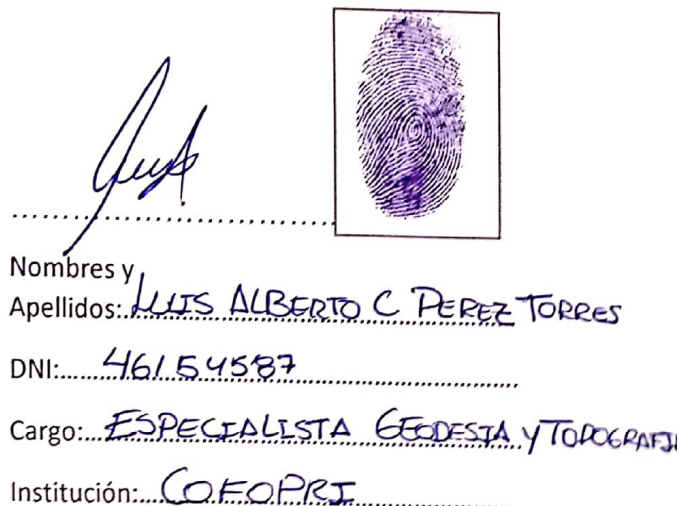 Nombres y
Apellidos: LUIS ALBERTO C PEREZ TORRES
DNI: 46154587
Cargo: ESPECIALISTA GEODESIA Y TOPOGRAFIA
Institución: COFOPRI